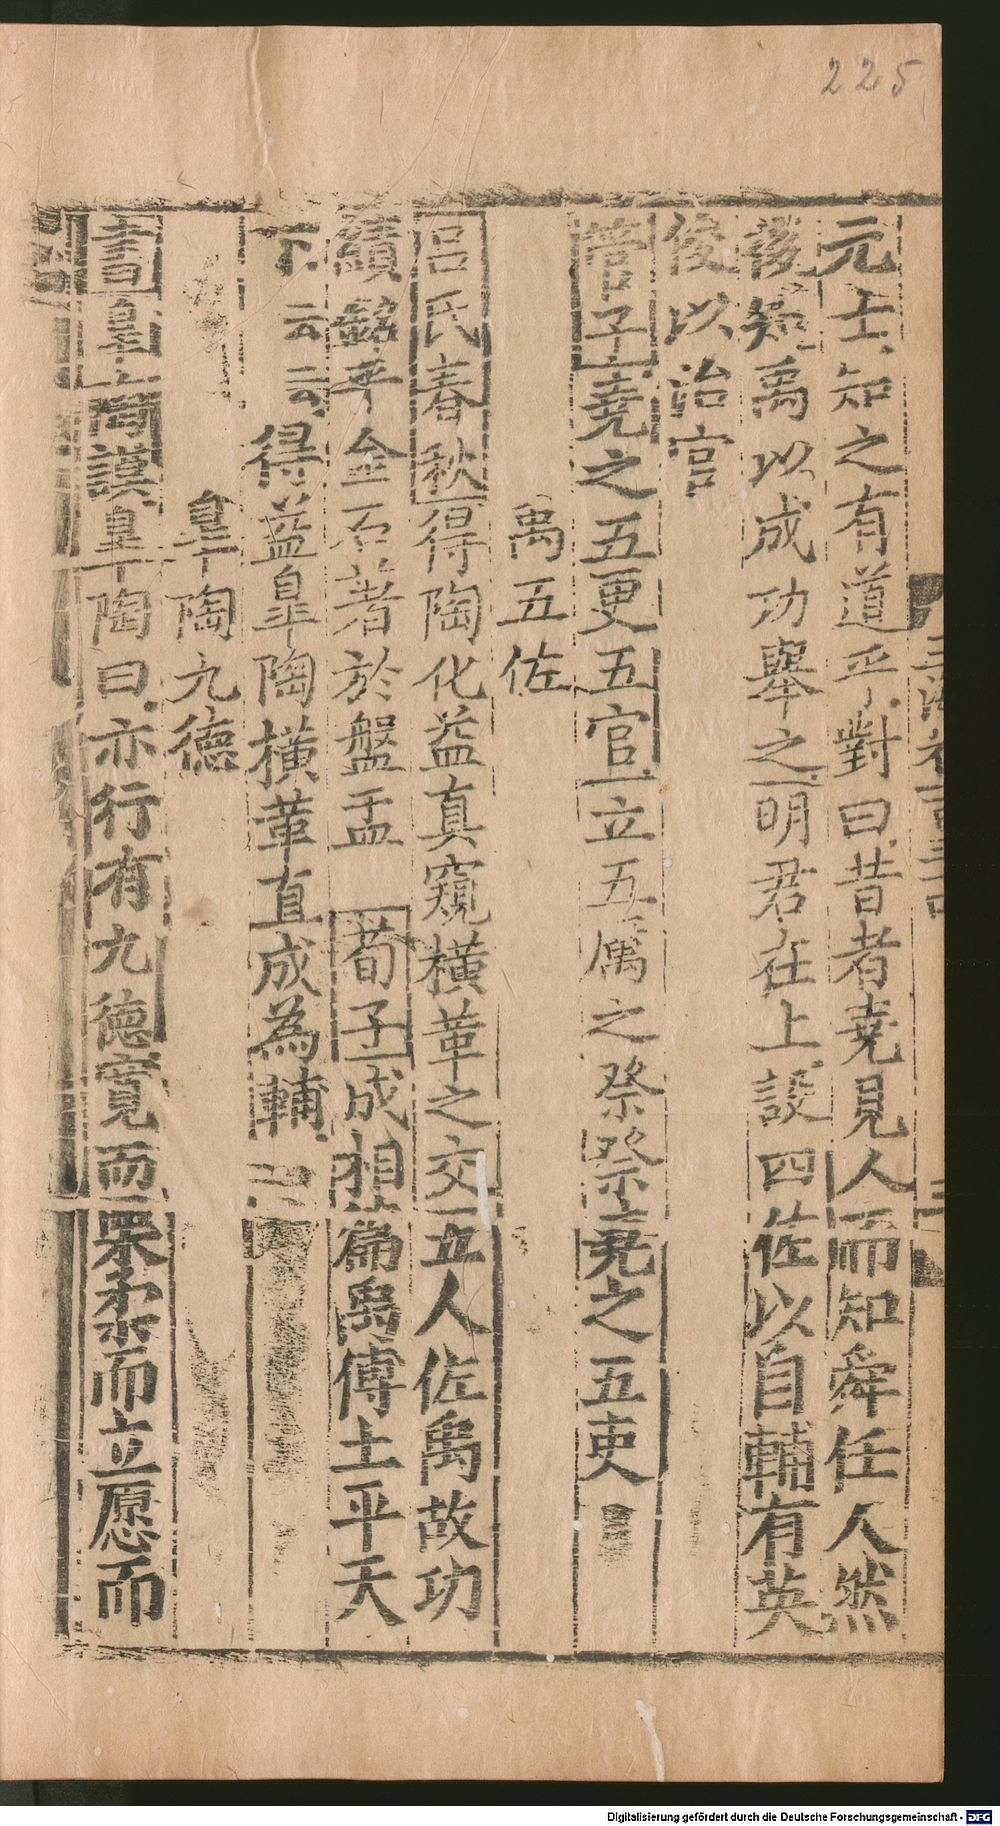 225
元士知之有道乎對曰昔者堯見人而知舜任人然
後知禹以成功舉之明君在上設四佐以自輔有英
俊以治官
管子堯之五更五官立五厲之祭祭堯之五吏
禹五佐
呂氏春秋得陶化益真窺橫革之交五人佐禹故功
績銘乎金石著於盤盂 荀子成相篇禹傅土平天
下云云得益皐陶橫革直成為輔
皐陶九德
書皐陶謨皐陶曰亦行有九德寬而栗柔而立愿而
Digitalisierung gefördert durch die Deutsche Forschungsgemeinschaft - DFG